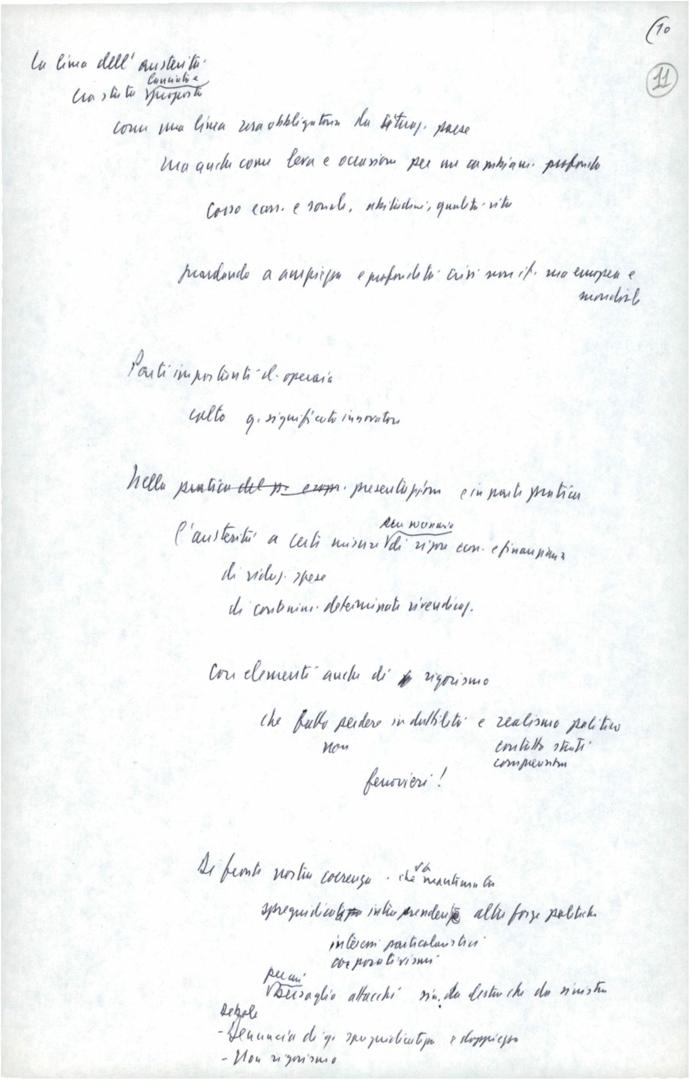 (10
11
La linea dell'austerità
concepita e
era stata proposta
come una linea resa obbligatoria da situaz. paese
ma anche come leva e occasione per un cambiam. profondo
corso econ. e sociale, abitudini, qualità vita
guardando a ampiezza e profondità crisi non it. ma europea e
mondiale
Parti importanti cl. operaia
colto q. significato innovatore
Nella pratica del p. com. presentazione e in parte pratica
l'austerità a certi misure di rigore econ. e finanziaria
di riduz. spese
di contenim. determinate rivendicaz.
con elementi anche di rigorismo
che fatto perdere in duttilità e realismo politico
non contatto strati
ferrovieri!
Di fronte nostra coerenza - che va mantenuta
spregiudicate altre forze politiche
interessi particolaristici
corporativismi
per cui
bersaglio attacchi sia da destra che da sinistra
- Denuncia di q. spregiudicatezza e doppiezza
- Non rigorismo